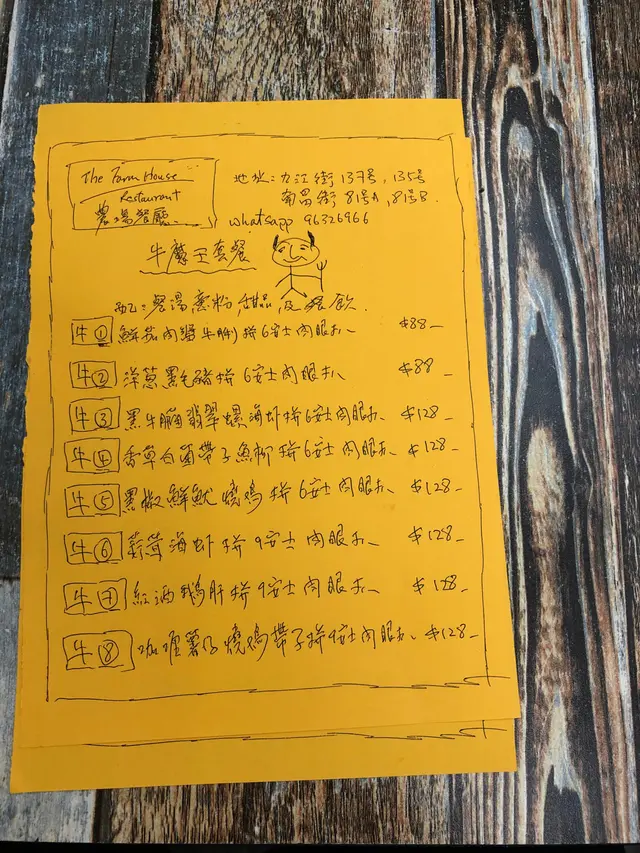 The Farm House
Restaurant
農場餐廳
地址：九江街137号，135号
南昌街81号A，81号B.
whatsapp 96326966
牛魔王套餐
配：餐湯 意粉，甜品，及餐飲.
牛① 鮮茄肉醬牛脷拼6安士肉眼扒 $88_
牛② 洋蔥黑毛豬拼6安士肉眼扒 $88_
牛③ 黑牛腩翡翠螺海虾拼6安士肉眼扒 $128_
牛④ 香草白菌帶子魚柳拼6安士肉眼扒 $128_
牛⑤ 黑椒鮮魷燒鸡拼6安士肉眼扒 $128_
牛⑥ 蒜茸海虾拼9安士肉眼扒 $128_
牛⑦ 紅酒鵝肝拼9安士肉眼扒 $128_
牛⑧ 咖喱薯仔燒鸡帶子拼9安士肉眼扒 $128_